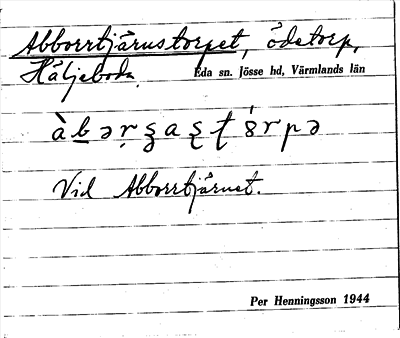 Abborrtjärnstorpet, ödetorp,
Häljeboda. Eda sn. Jösse hd, Värmlands län
Vid Abborrtjärnet.
Per Henningsson 1944